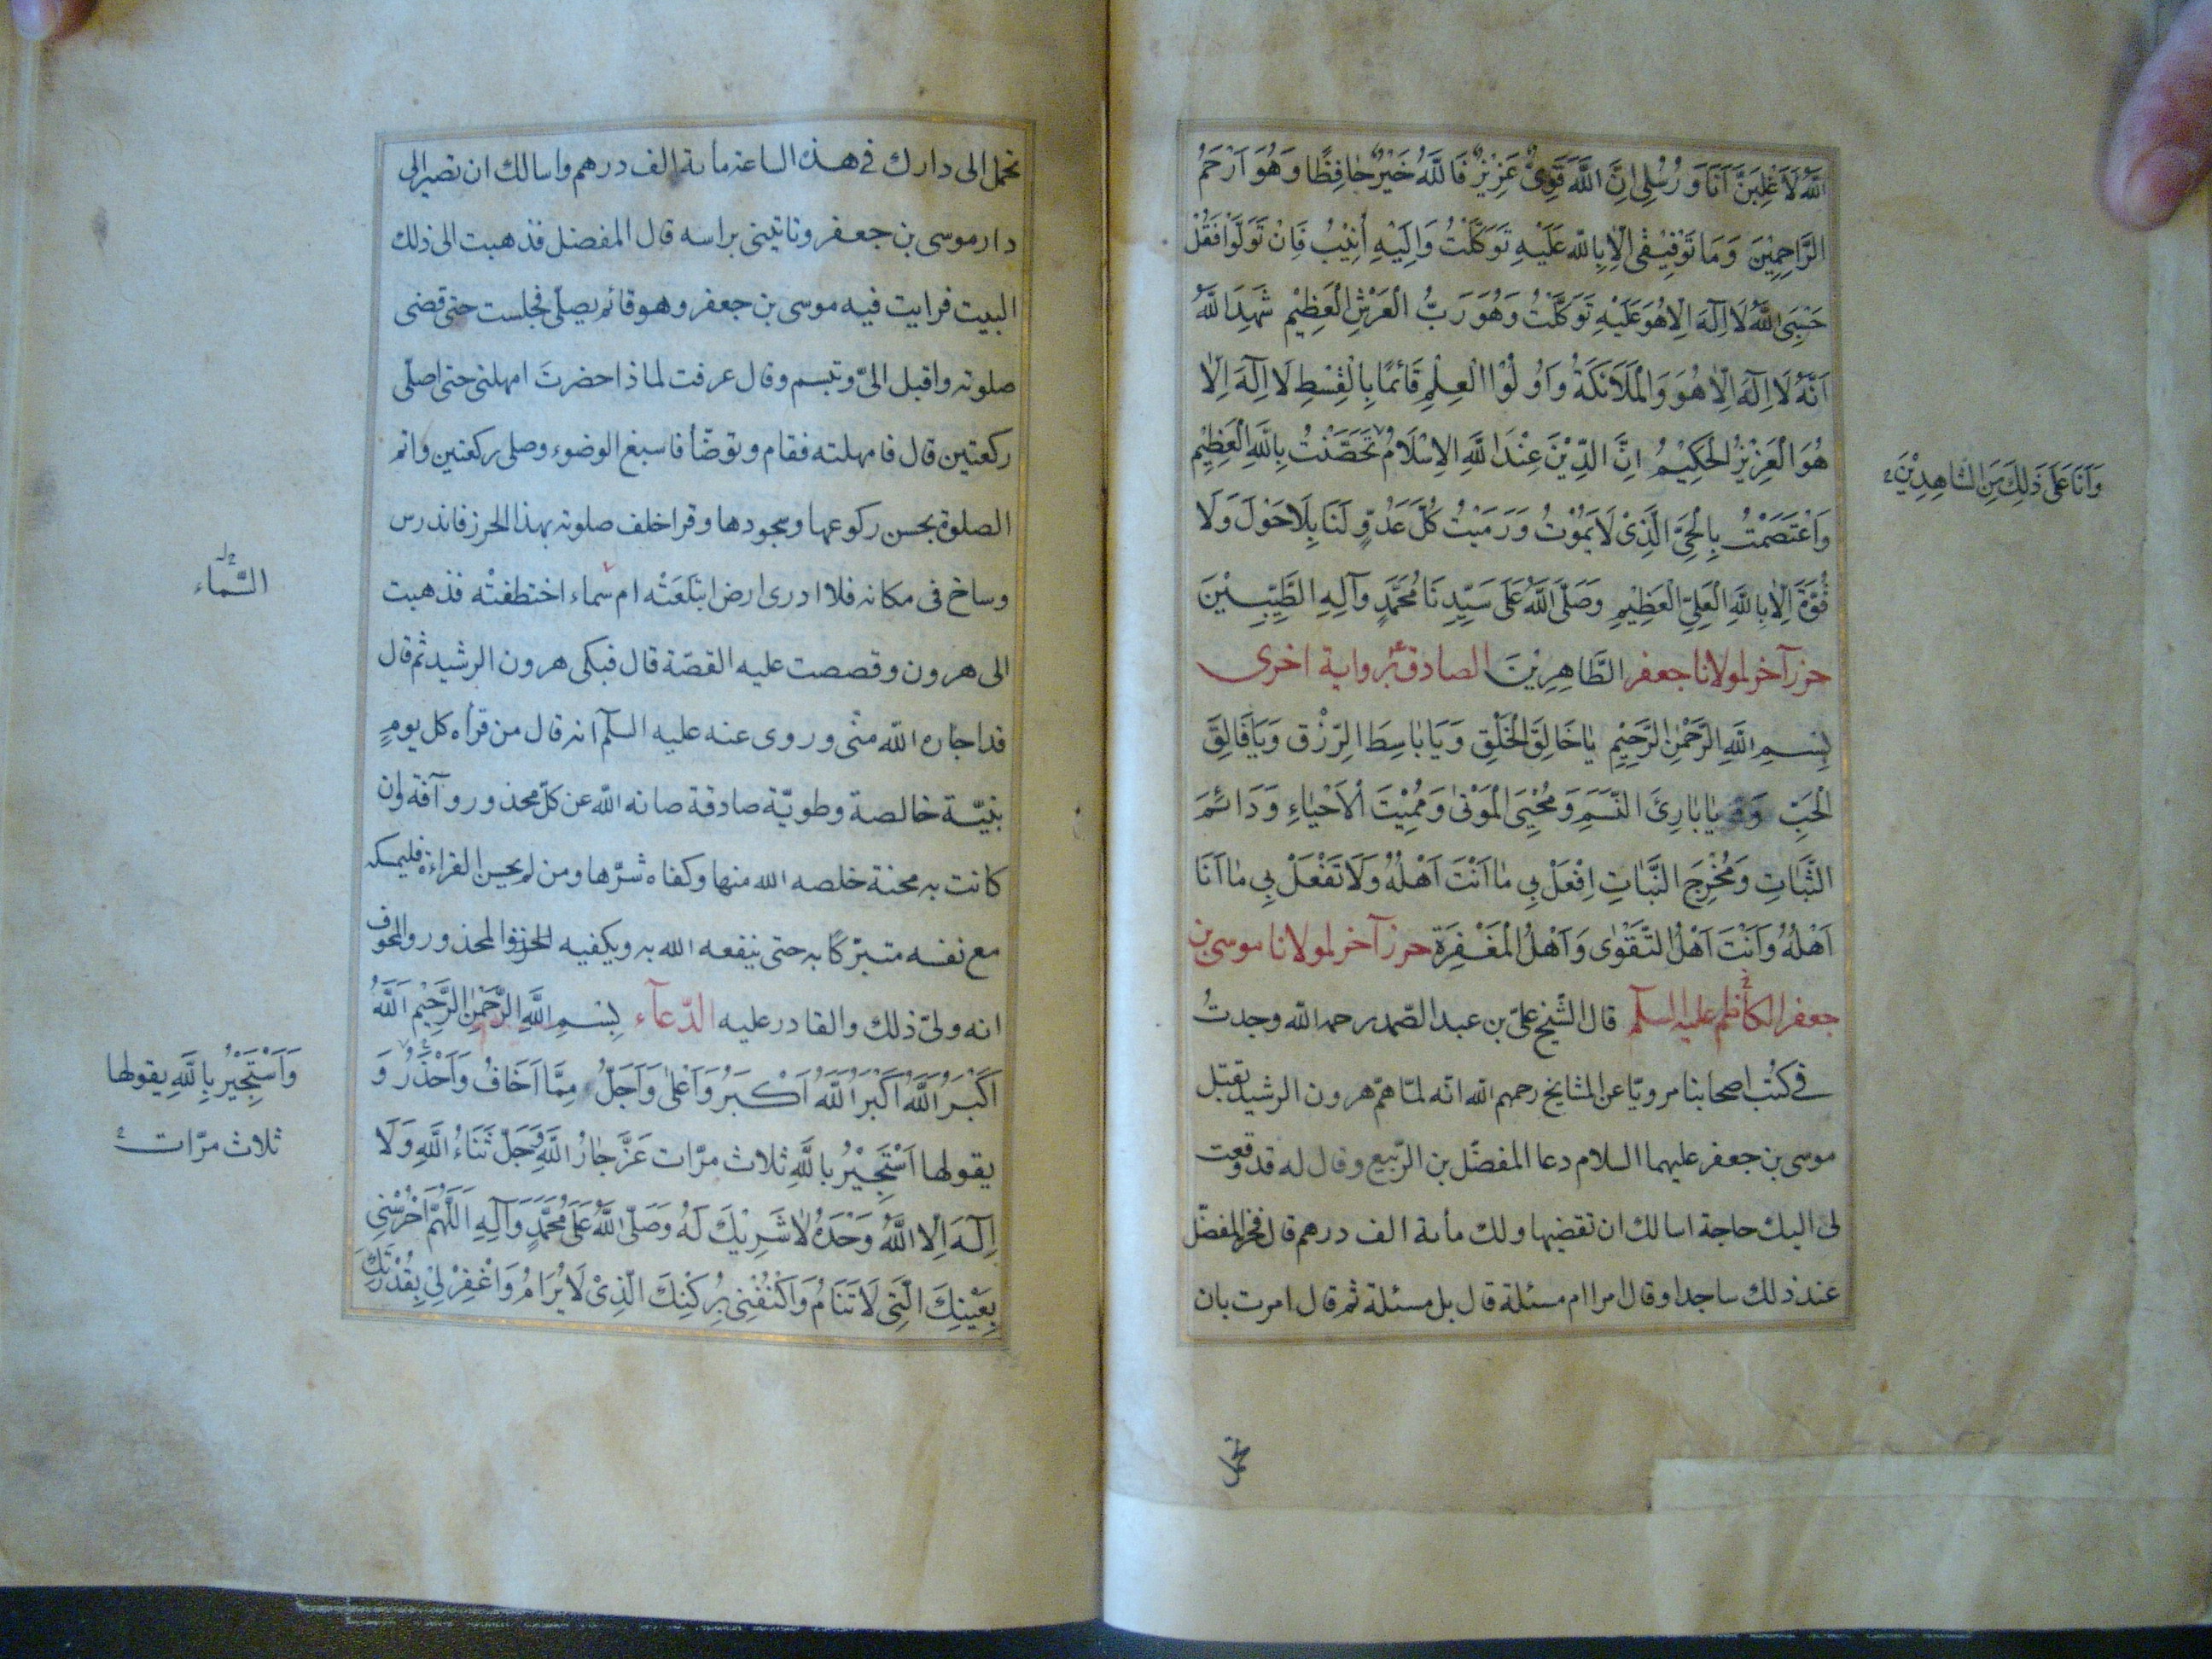 اللهُ لَأَغْلِبَنَّ أَنَا وَرُسُلِي إِنَّ اللَّهَ قَوِيٌّ عَزِيزٌ فَاللَّهُ خَيْرٌ حَافِظًا وَهُوَ أَرْحَمُ
الرَّاحِمِينَ وَمَا تَوْفِيقِي إِلَّا بِاللَّهِ عَلَيْهِ تَوَكَّلْتُ وَإِلَيْهِ أُنِيبُ فَإِنْ تَوَلَّوْا فَقُلْ
حَسْبِيَ اللَّهُ لَا إِلَهَ إِلَّا هُوَ عَلَيْهِ تَوَكَّلْتُ وَهُوَ رَبُّ الْعَرْشِ الْعَظِيمِ شَهِدَ اللَّهُ
أَنَّهُ لَا إِلَهَ إِلَّا هُوَ وَالْمَلَائِكَةُ وَأُولُوا الْعِلْمِ قَائِمًا بِالْقِسْطِ لَا إِلَهَ إِلَّا
هُوَ الْعَزِيزُ الْحَكِيمُ إِنَّ الدِّينَ عِنْدَ اللَّهِ الْإِسْلَامُ تَحَصَّنْتُ بِاللَّهِ الْعَظِيمِ
وَأَنَا عَلَى ذَلِكَ مِنَ الشَّاهِدِينَ
وَاعْتَصَمْتُ بِالْحَيِّ الَّذِي لَا يَمُوتُ وَرَمَيْتُ كُلَّ عَدُوٍّ لَنَا بِلَا حَوْلَ وَلَا
قُوَّةَ إِلَّا بِاللَّهِ الْعَلِيِّ الْعَظِيمِ وَصَلَّى اللَّهُ عَلَى سَيِّدِنَا مُحَمَّدٍ وَآلِهِ الطَّيِّبِينَ
حرز آخر لمولانا جعفر الطَّاهِرِينَ الصادق برواية اخرى
بِسْمِ اللَّهِ الرَّحْمَنِ الرَّحِيمِ يَا خَالِقَ الْخَلْقِ وَيَا بَاسِطَ الرِّزْقِ وَيَا فَالِقَ
الْحَبِّ وَيَا بَارِئَ النَّسَمِ وَمُحْيِيَ الْمَوْتَى وَمُمِيتَ الْأَحْيَاءِ وَدَائِمَ
الثَّبَاتِ وَمُخْرِجَ النَّبَاتِ اِفْعَلْ بِي مَا أَنْتَ أَهْلُهُ وَلَا تَفْعَلْ بِي مَا أَنَا
أَهْلُهُ وَأَنْتَ أَهْلُ التَّقْوَى وَأَهْلُ الْمَغْفِرَةِ حرز آخر لمولانا موسى بن
جعفر الكاظم عليه السلم قال الشيخ علىّ بن عبد الصّمد رحمه الله وجدتُ
فى كتب اصحابنا مرويّا عن المشايخ رحمهم الله انّه لمّا همّ هرون الرشيد بقتل
موسى بن جعفر عليهما السلام دعا المفضّل بن الرّبيع وقال له قد وقعت
لى اليك حاجة اسالك ان تقضيها ولك مأىة الف درهم قال فخرّ المفضّل
عند ذلك ساجدا وقال امرا ام مسئلة قال بل مسئلة ثم قال امرت بان
تحمل
تحمل الى دارك فى هذه الساعة مأىة الف درهم واسالك ان تصير الى
دار موسى بن جعفر وتاتينى براسه قال المفضل فذهبت الى ذلك
البيت فرايت فيه موسى بن جعفر وهو قائم يصلّى فجلست حتى قضى
صلوته واقبل الىّ وتبسم وقال عرفت لماذا حضرتَ امهلنى حتى اصلّى
ركعتين قال فامهلته فقام وتوضّأ فاسبغ الوضوء وصلى ركعتين واتم
الصلوة بحسن ركوعها وسجودها وقرا خلف صلوته بهذا الحرز فاندرس
وساخ فى مكانه فلا ادرى ارض ابتلعَتْه ام سماء اختطفتْه فذهبت
السَّماء
الى هرون وقصصت عليه القصّة قال فبكى هرون الرشيد ثم قال
قد اجاره الله منّى وروى عنه عليه السلم انه قال من قرأه كل يومٍ
بنيّة خالصة وطويّة صادقة صانه الله عن كلّ محذور وآفة وان
كانت به محنة خلصه الله منها وكفاه شرّها ومن لم يحسن القراءة فليمسكه
مع نفسه متبرّكًا به حتى ينفعه الله به ويكفيه المحذور والمخوف
انه ولىّ ذلك والقادر عليه الدّعآء بِسْمِ اللَّهِ الرَّحْمَنِ الرَّحِيمِ اَللَّهُ
أَكْبَرُ اللَّهُ أَكْبَرُ اللَّهُ أَكْبَرُ وَأَعْلَى وَأَجَلُّ مِمَّا أَخَافُ وَأَحْذَرُ وَ
وَأَسْتَجِيرُ بِاللَّهِ يقولها
ثلاث مرّات
يقولها أَسْتَجِيرُ بِاللَّهِ ثلاث مرّات عَزَّ جَارُ اللَّهِ وَجَلَّ ثَنَاءُ اللَّهِ وَلَا
إِلَهَ إِلَّا اللَّهُ وَحْدَهُ لَا شَرِيكَ لَهُ وَصَلَّى اللَّهُ عَلَى مُحَمَّدٍ وَآلِهِ اَللَّهُمَّ احْرُسْنِي
بِعَيْنِكَ الَّتِي لَا تَنَامُ وَاكْنُفْنِي بِرُكْنِكَ الَّذِي لَا يُرَامُ وَاغْفِرْ لِي بِقُدْرَتِكَ